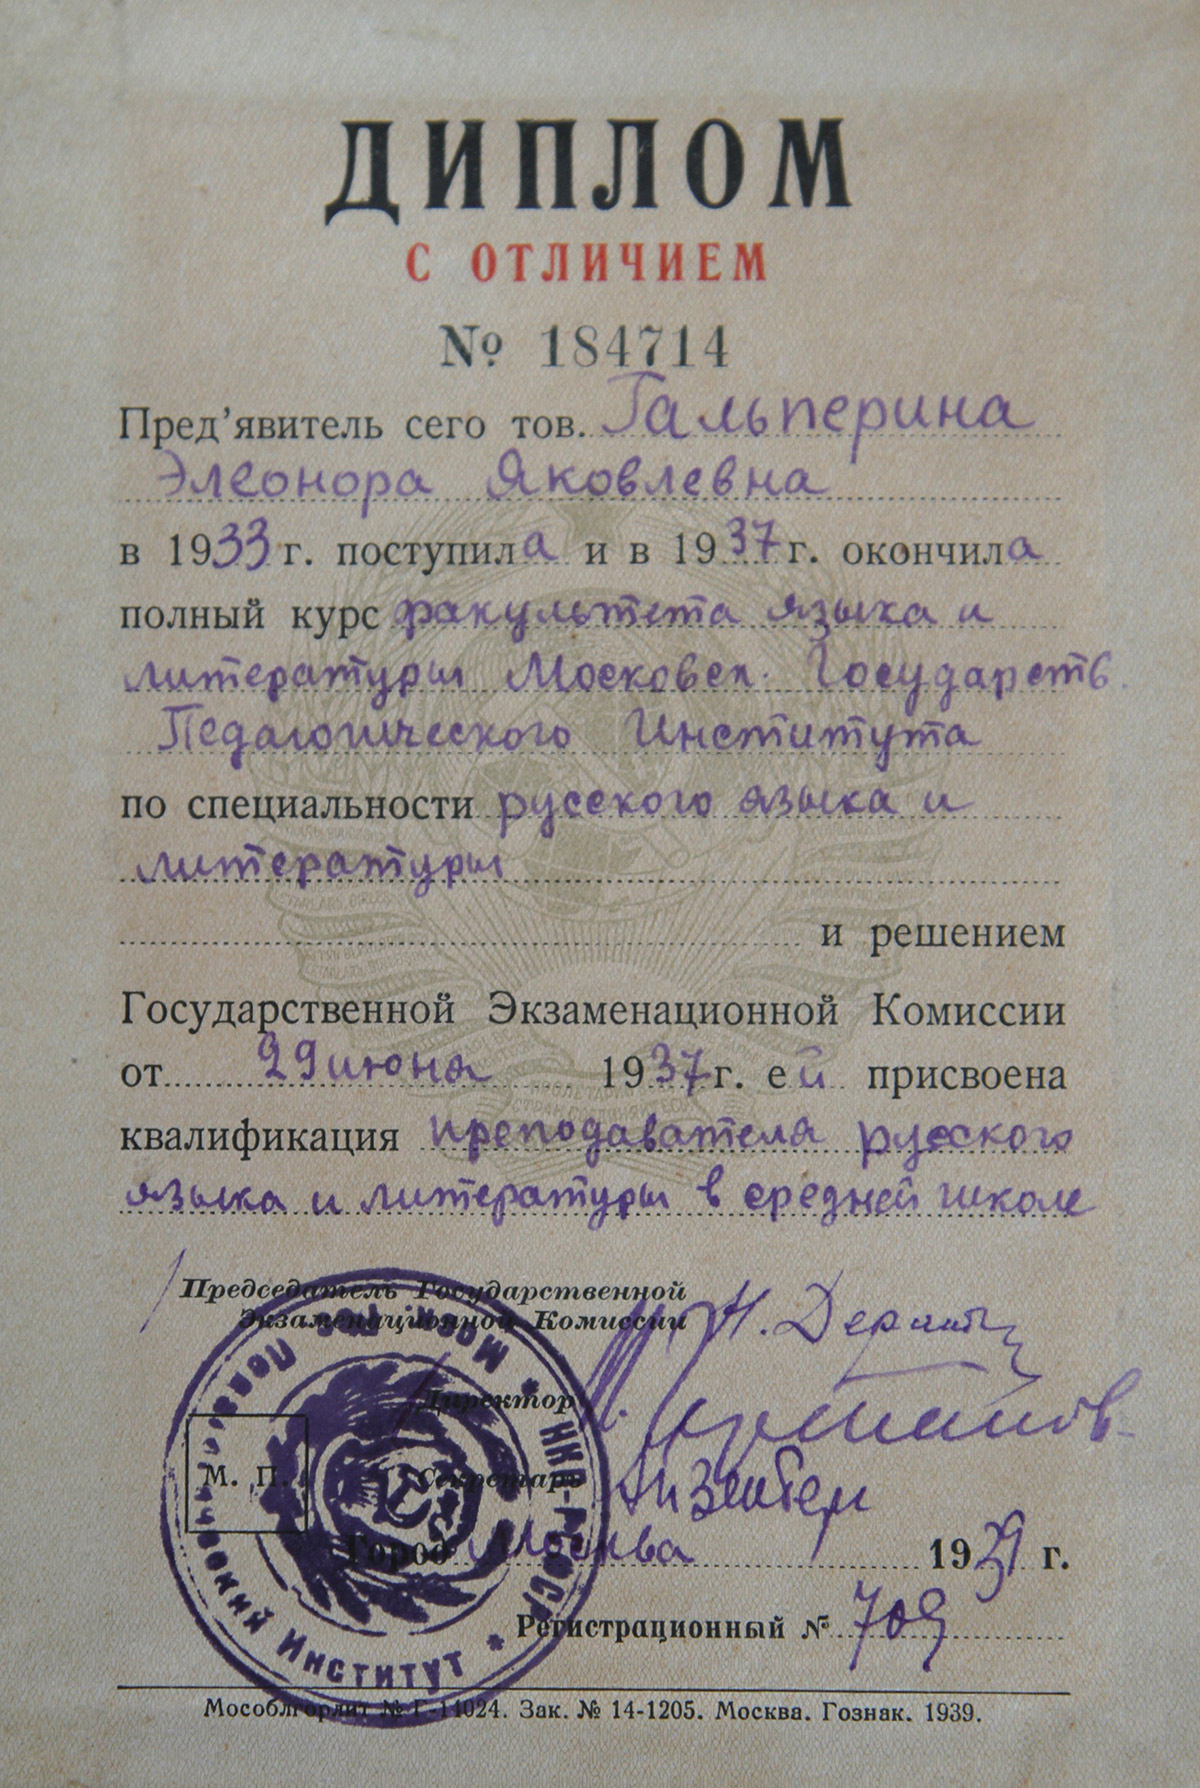 ДИПЛОМ
С ОТЛИЧИЕМ
№ 184714
Пред'явитель сего тов. Гальперина
Элеонора Яковлевна
в 1933 г. поступила и в 1937 г. окончила
полный курс факультета языка и
литературы Московск. Государств.
Педагогического Института
по специальности русского языка и
литературы
и решением
Государственной Экзаменационной Комиссии
от 29 июня 1937 г. ей присвоена
квалификация преподавателя русского
языка и литературы в средней школе
Председатель Государственной
Экзаменационной Комиссии Н.
Директор
М. П. Секретарь
Город Москва 1939 г.
Регистрационный № 709
Мособлгорлит № Г-14024. Зак. № 14-1205. Москва. Гознак. 1939.
Моск. Гос. Педагог
Институт
НКП-РСФСР